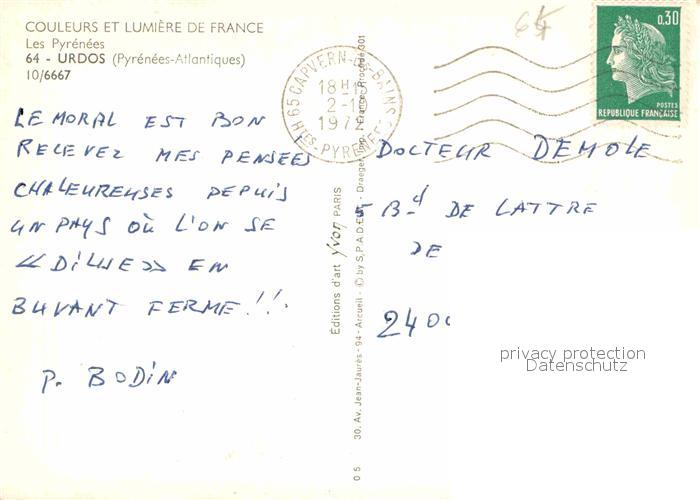 COULEURS ET LUMIÈRE DE FRANCE
Les Pyrénées
64 - URDOS (Pyrénées-Atlantiques)
10/6667
LE MORAL EST BON
RECEVEZ MES PENSEES
CHALEUREUSES DEPUIS
UN PAYS OÙ L'ON SE
« DILUE » EN
BUVANT FERME !!!
P. BODIN
Éditions d'art yvon PARIS
30. Av. Jean-Jaurès - 94 - Arcueil - © by S.P.A.D.E.M. - Draeger Imp. France Procédé 301
0 5
65 CAPVERN-LES-BAINS
18H
197
HTES-PYRENEES
0,30
POSTES
REPUBLIQUE FRANÇAISE
DOCTEUR DEMOLE
5 Bd DE LATTRE
DE
240
privacy protection
Datenschutz